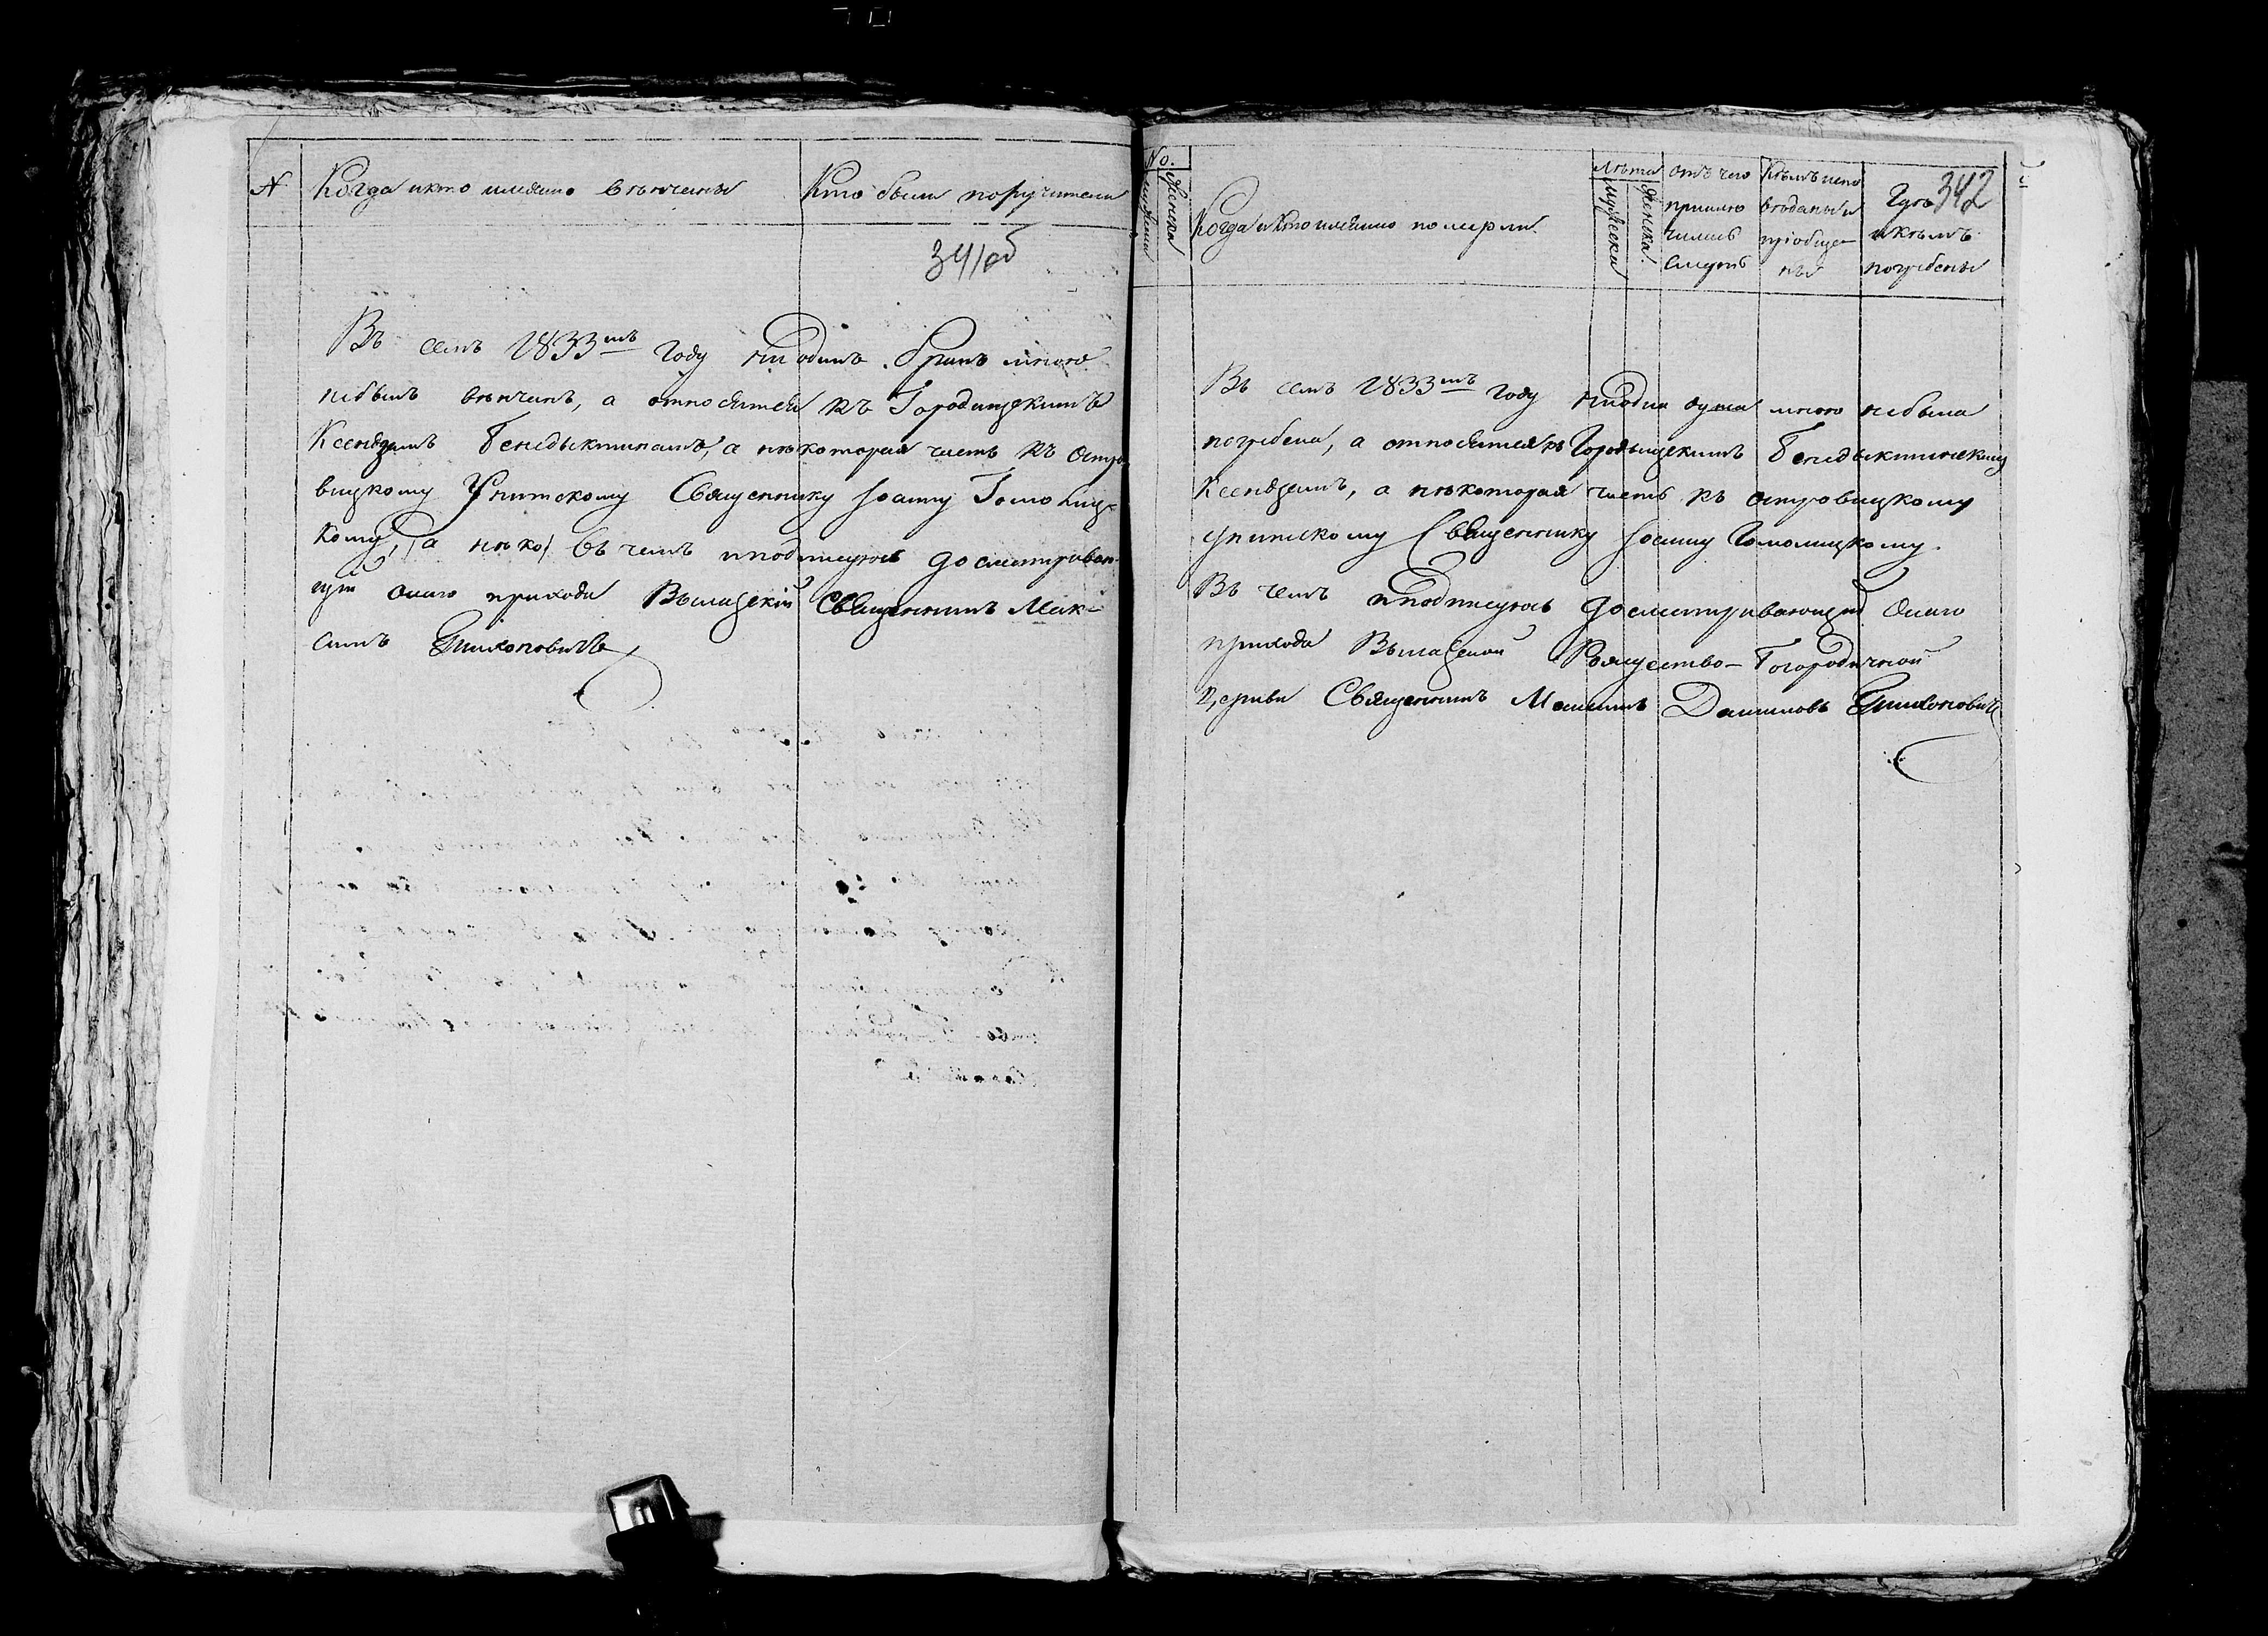 №
Когда и кто имянно венчаны
Кто были поручители
341об
Въ семъ 1833мъ году ниодинъ бракъ мною
небылъ венчанъ, а относятся къ Городищскимъ
Ксендзамъ Бенедыктинамъ, а некоторая часть къ Остро
вицкому Унитскому Священнику Іоанну Гомолиц-
кому, /а неко/ въ чемъ и подписуюсь досматриваю
щій онаго прихода Священникъ Мак-
симъ Тихоновичъ
No.
мужеска
женска
Когда и кто имянно померли.
Лета
мужеска
женска
отъ чего
приклю
чилась
смерть
Кемъ испо
веданы и
пріобще-
ны
Гдѣ
и кемъ
погребены
342
Въ семъ 1833мъ году ниодна душа мною небыла
погребена, а относятся къ Городыщскимъ Бенедыктинскимъ
Ксендземъ, а некоторая часть къ островицкому
унитскому Священнику Іоанну Гомолицкому.
Въ чемъ и подписуюсь досматривающій онаго
прихода Рождество-Богородичной
Церкви Священникъ Максимъ Даниловъ Тихоновичъ